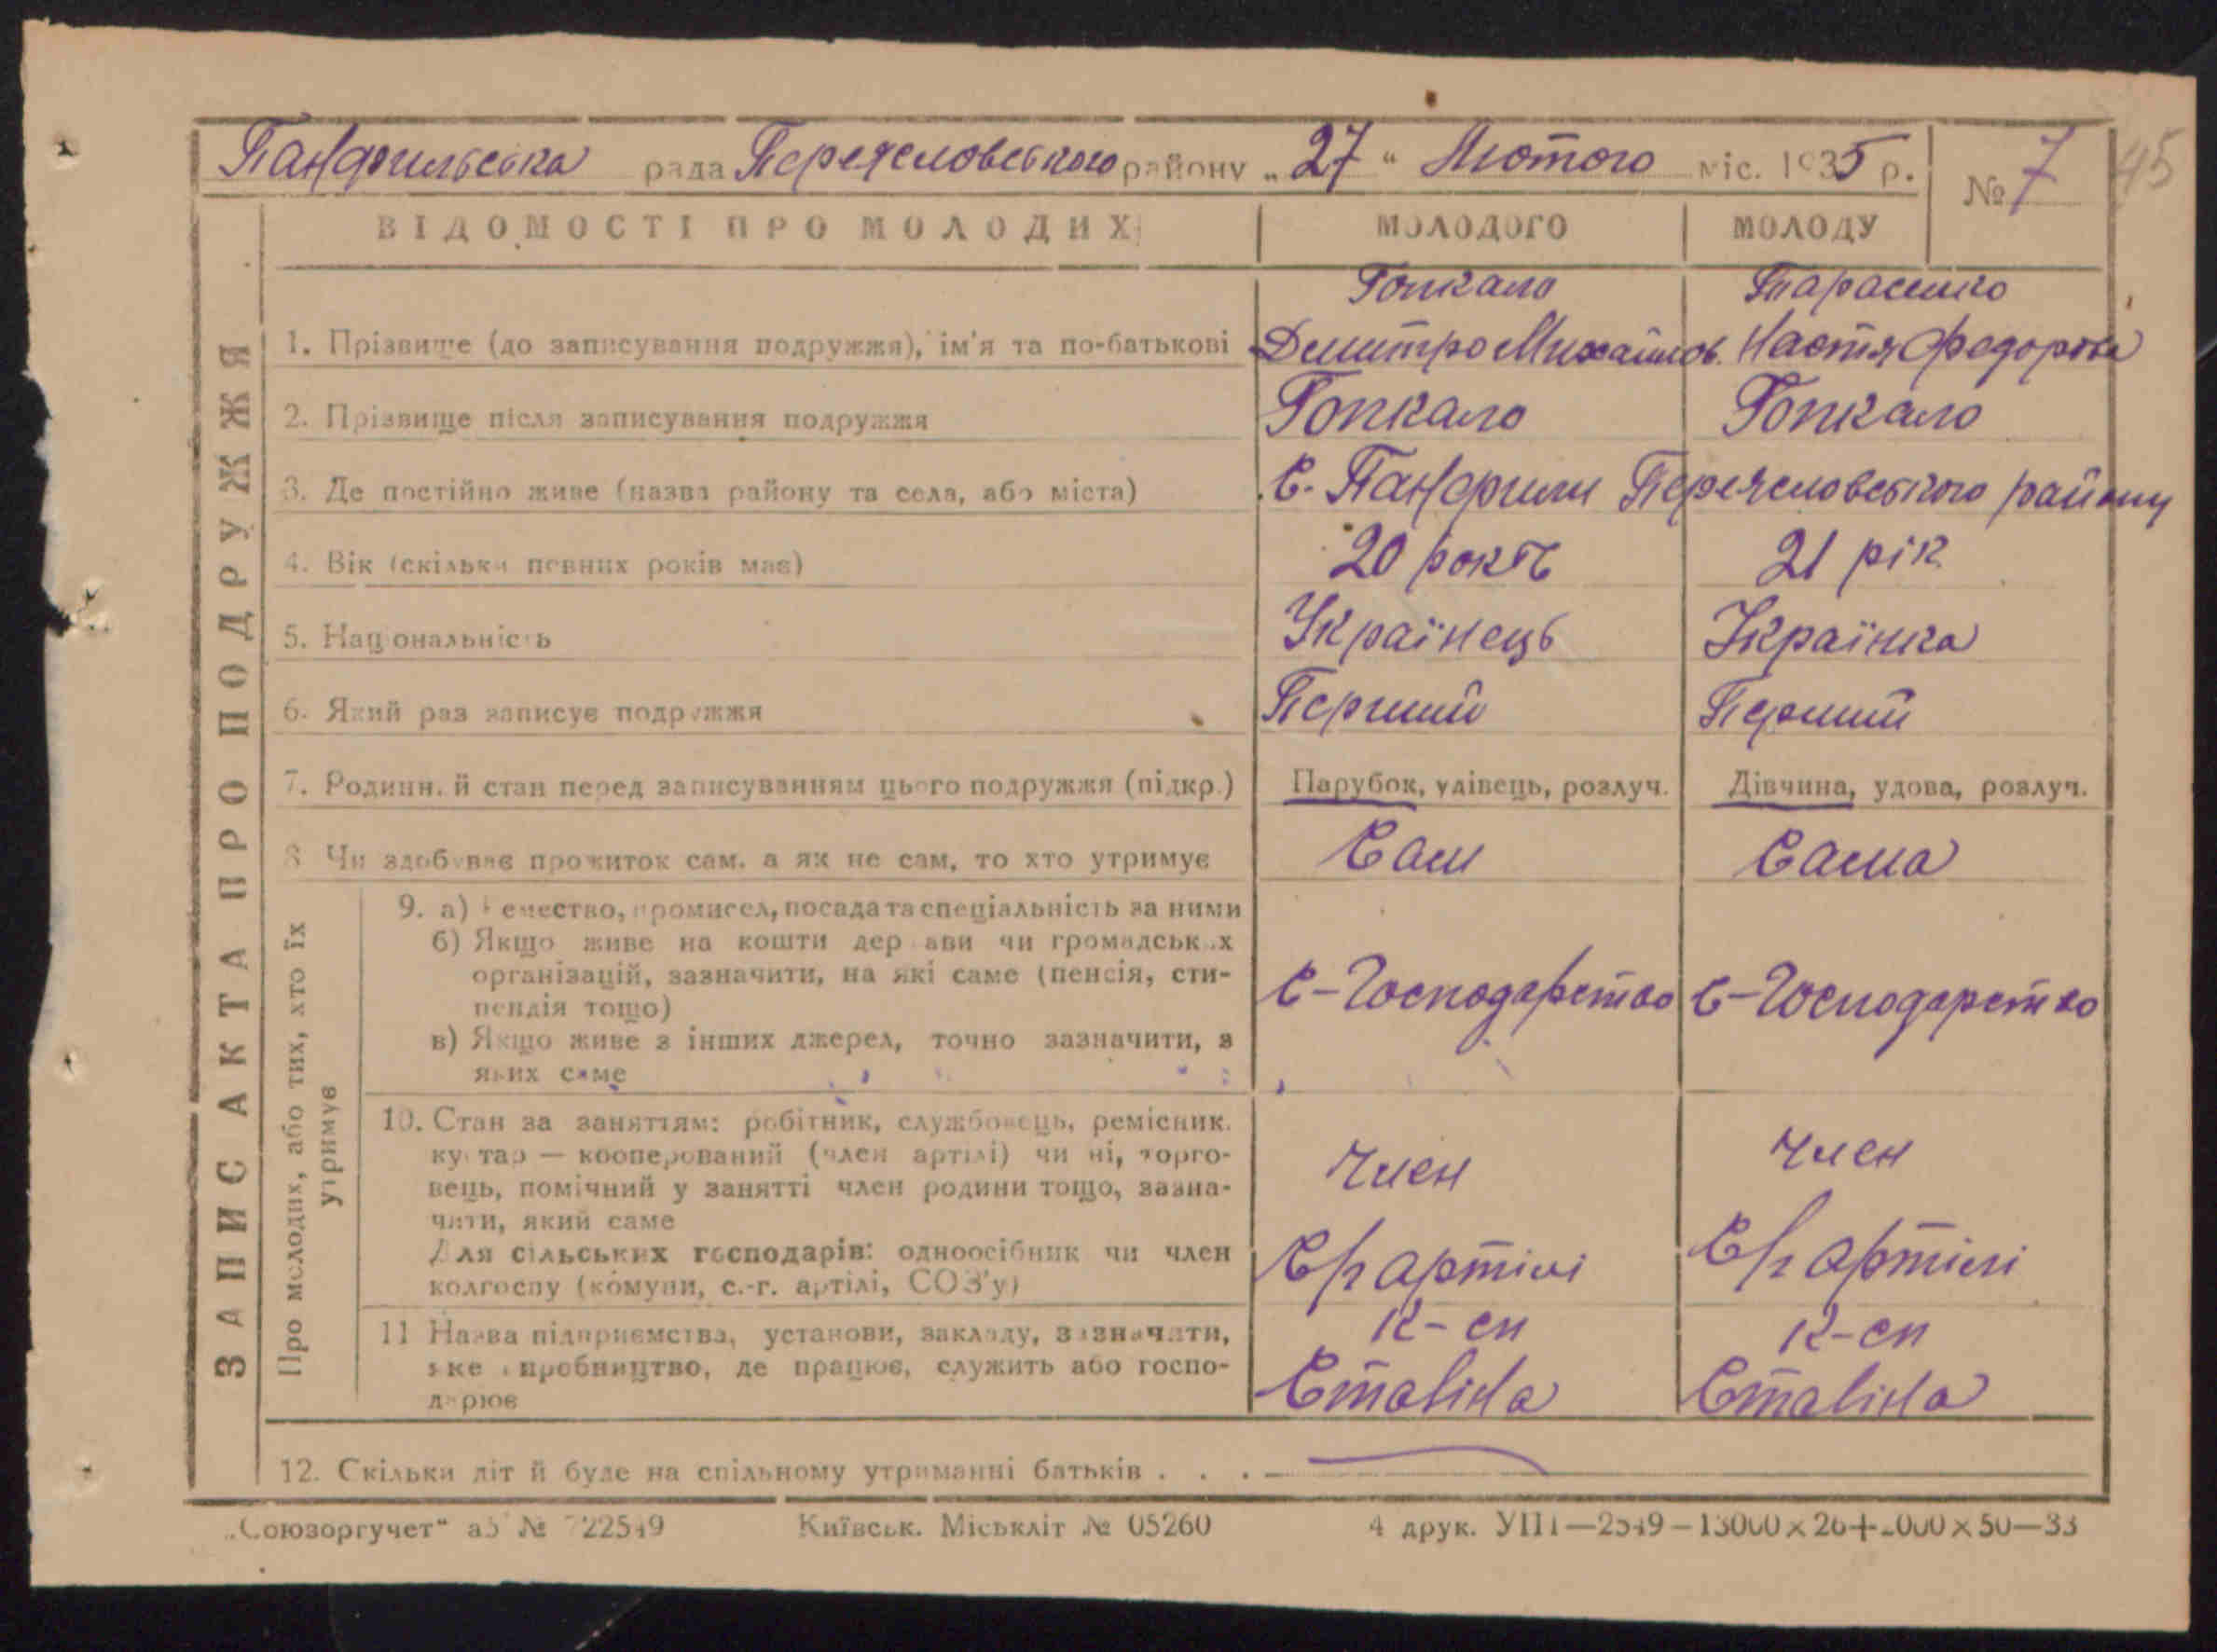 Панфильська рада Переяславського району „27“ Лютого міс. 1935 р. № 7 45
ВІДОМОСТІ ПРО МОЛОДИХ МОЛОДОГО МОЛОДУ
Гопкало Тарасенко
1. Прізвище (до записування подружжя), ім'я та по-батькові Демитро Михайлов. Настя Федорова
2. Прізвище після записування подружжя Гопкало Гопкало
3. Де постійно живе (назва району та села, або міста) С. Панфили Переяславського району
4. Вік (скільки повних років має) 20 років 21 рік
5. Національність Українець Українка
6. Який раз записує подружжя Перший Перший
7. Родинний стан перед записуванням цього подружжя (підкр.) Парубок, удівець, розлуч. Дівчина, удова, розлуч.
8 Чи здобуває прожиток сам, а як не сам, то хто утримує Сам Сама
ЗАПИС АКТА ПРО ПОДРУЖЖЯ
Про молодих, або тих, хто їх
утримує
9. а) Ремество, промисел, посада та спеціальність за ними
б) Якщо живе на кошти держави чи громадських
організацій, зазначити, на які саме (пенсія, сти-
пендія тощо) С-Господарство С-Господарство
в) Якщо живе з інших джерел, точно зазначити, з
яких саме
10. Стан за заняттям: робітник, службовець, ремісник,
кустар — кооперований (член артілі) чи ні, торго-
вець, помічний у занятті член родини тощо, зазна- член член
чити, який саме
Для сільських господарів: одноосібник чи член
колгоспу (комуни, с.-г. артілі, СОЗ'у) С/г артілі С/г артілі
11 Назва підприємства, установи, закладу, зазначити, К-сп К-сп
яке виробництво, де працює, служить або госпо-
дарює Сталіна Сталіна
12. Скільки літ й буде на спільному утриманні батьків . . .
„Союзоргучет“ № Київськ. Міськліт № 05260 4 друк. УПП—2549—13000×26+2000×50—33